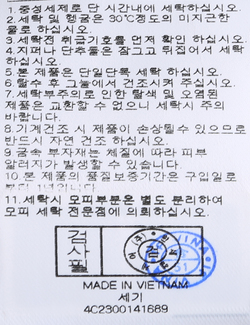 1. 중성세제로 단 시간내에 세탁하십시오.
2. 세탁 및 헹굼은 30℃정도의 미지근한
물로 하십시오.
3. 세탁전 취급기호를 먼저 확인 하십시오.
4. 지퍼나 단추들은 잠그고 뒤집어서 세탁
하십시오.
5. 본 제품은 단일단독 세탁 하십시오.
6. 탈수 후 그늘에서 건조시켜 주십시오.
7. 세탁부주의로 인한 탈색 및 오염된
제품은 교환할 수 없으니 세탁시 주의
바랍니다.
8. 기계건조 시 제품이 손상될수 있으므로
반드시 자연 건조 하십시오.
9. 금속 부자재는 체질에 따라 피부
알러지가 발생할 수 있습니다.
10. 본 제품의 품질보증기간은 구입일로
부터 1년입니다.
11. 세탁시 모피부분은 별도 분리하여
모피 세탁 전문점에 의뢰하십시오.
검사필
MADE IN VIETNAM
세기
4C2300141689